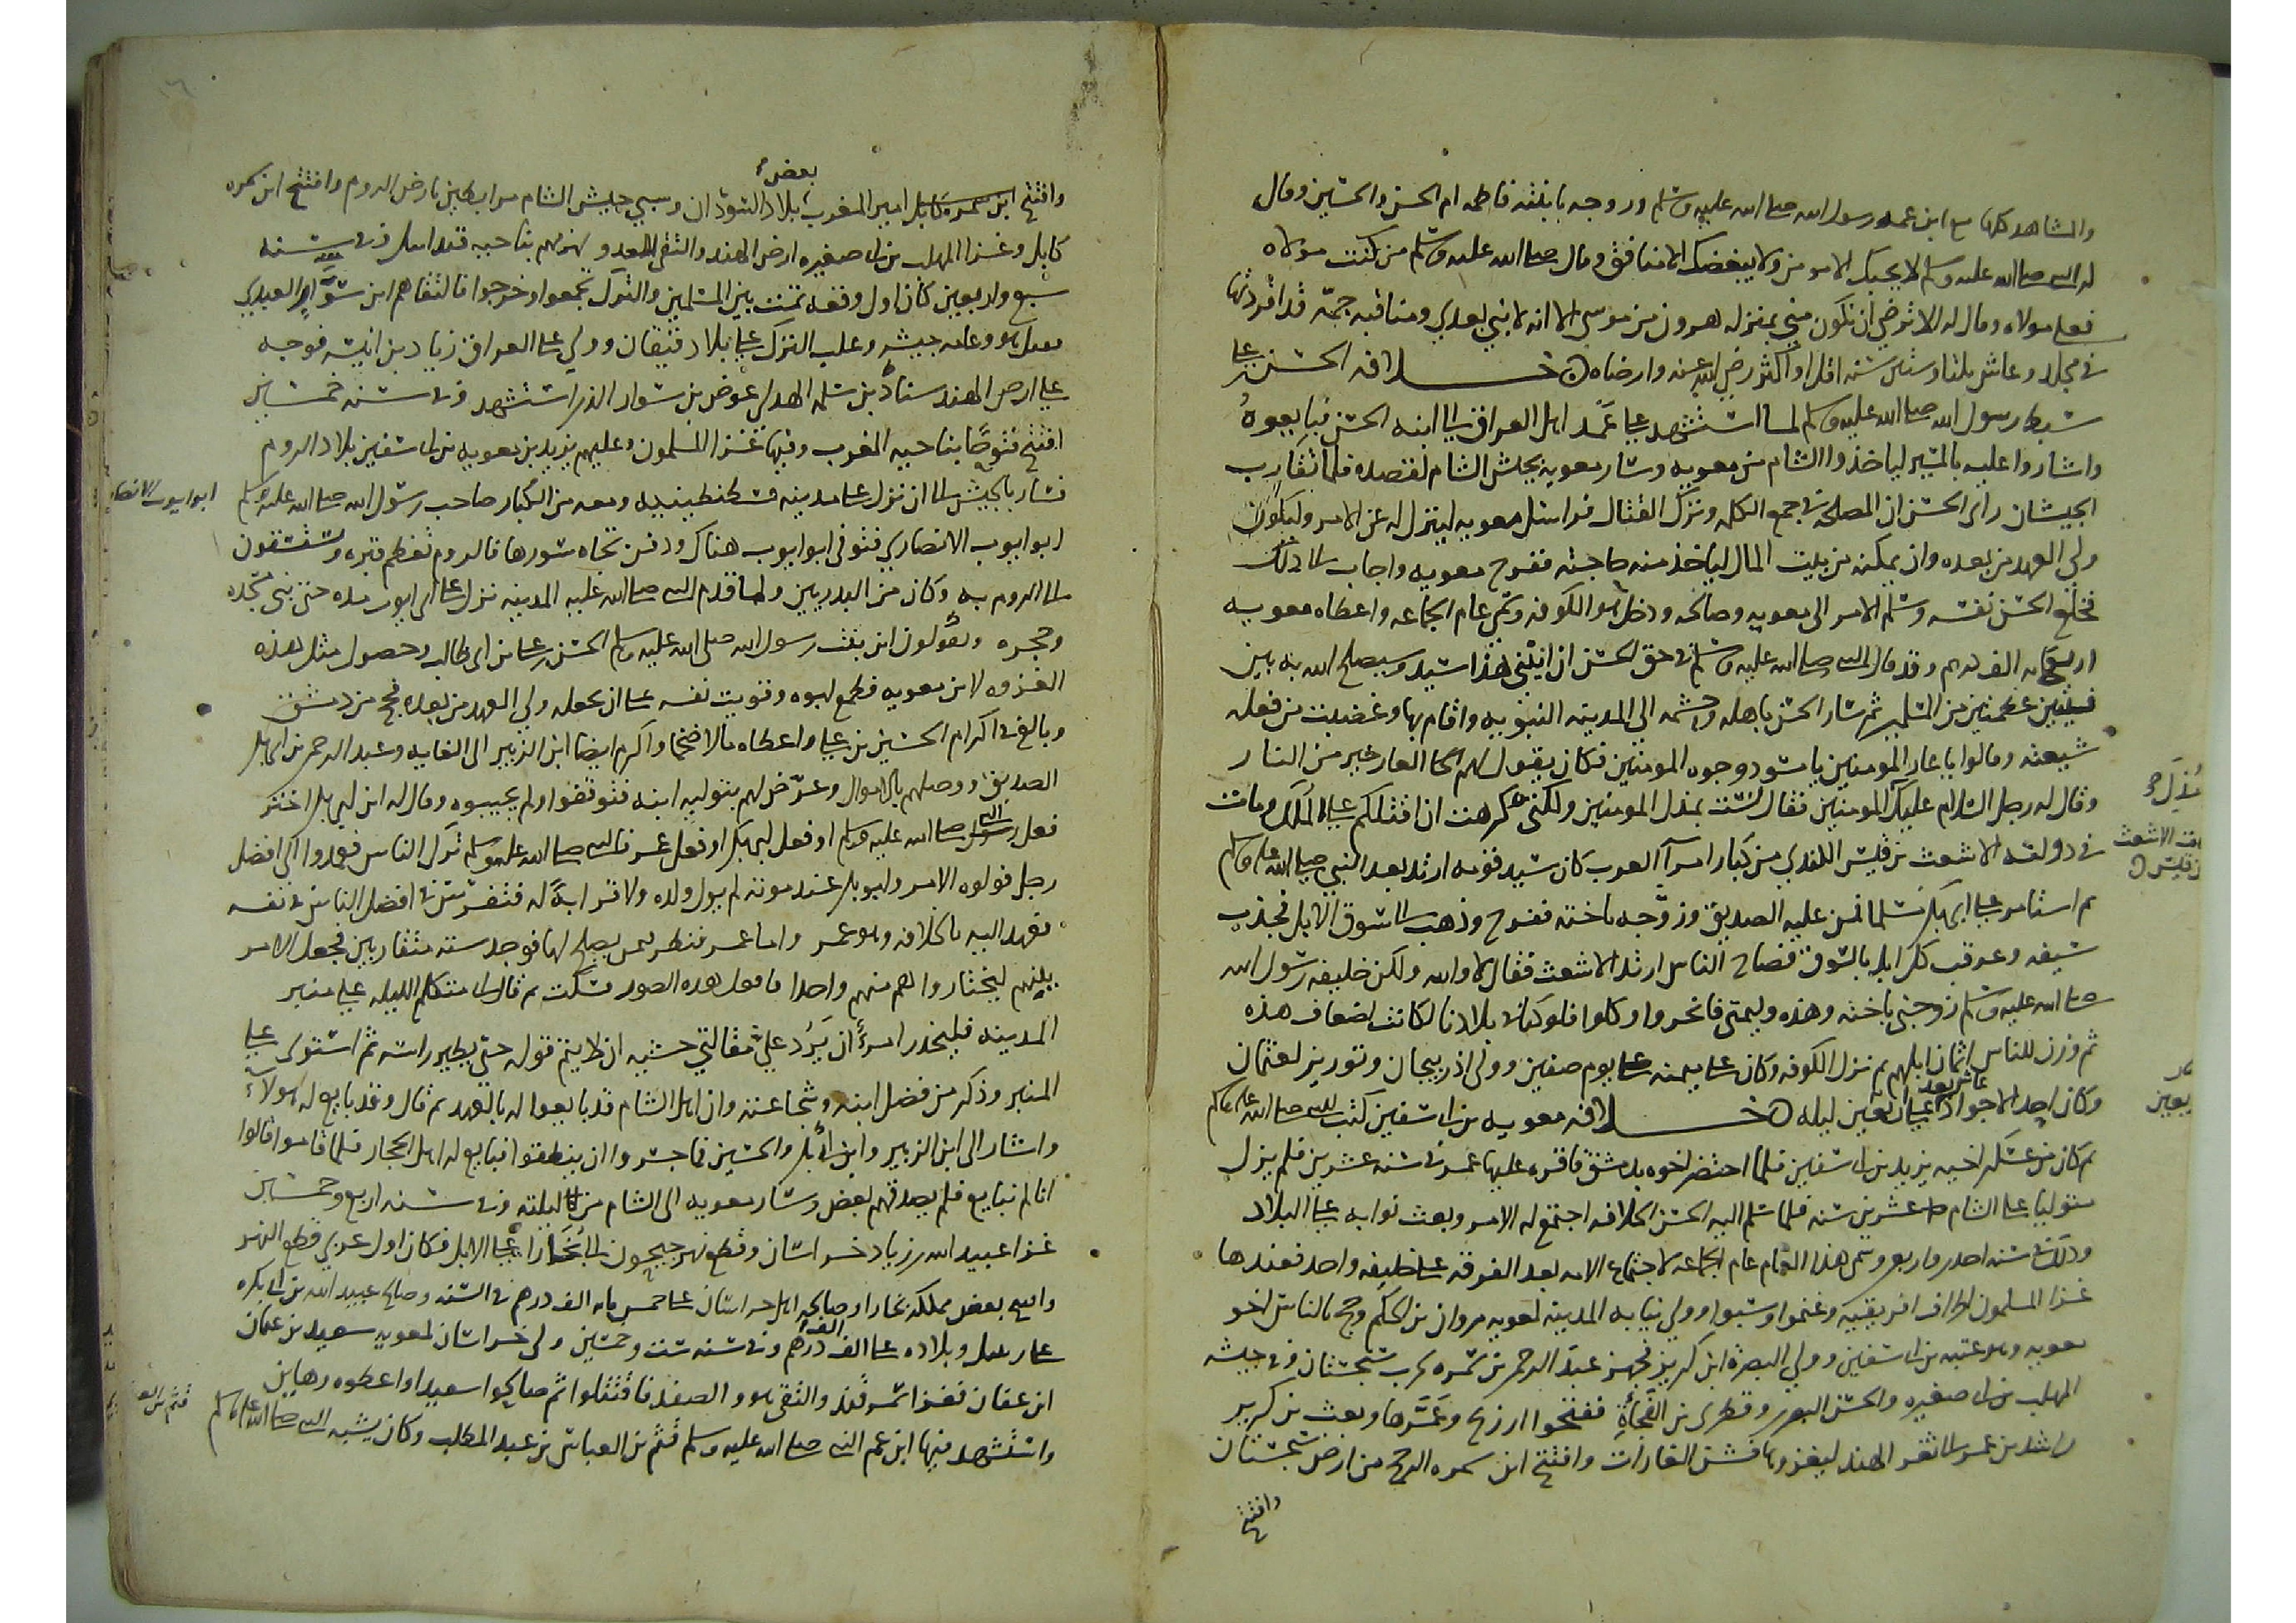 والمشاهد كلها مع ابن عمه رسول الله صلى الله عليه وسلم وزوجه بابنته فاطمه ام الحسن والحسين وقال
له النبي صلى الله عليه وسلم لا يحبك الا مومن ولا يبغضك الا منافق وقال صلى الله عليه وسلم من كنت مولاه
فعلي مولاه وقال له الا ترضى ان تكون مني بمنزله هرون من موسى الا انه لا نبي بعدي ومناقبه جمّة قد افردتها
في مجلد وعاش ثلثا وستين سنه اقل او اكثر رضي الله عنه وارضاه خلافه الحسن بن علي
سبط رسول الله صلى الله عليه وسلم لما استشهد علي عَمَد اهل العراق الى ابنه الحسن فبايعوهُ
واشاروا عليه بالمسير لياخذوا الشام من معويه وسار معويه بجيش الشام لقصده فلما تقارب
الجيشان راى الحسن ان المصلحه في جمع الكلمه وترك القتال فراسل معويه لينزل له عن الامر وليكون
ولي العهد من بعده وان يمكنه من بيت المال لياخذ منه حاجته ففرح معويه واجاب الى ذلك
فخلع الحسن نفسه وسلم الامر الى معويه وصالحه ودخل هو الكوفه وسمي عام الجماعه واعطاه معويه
اربعمايه الف درهم وقد قال النبي صلى الله عليه وسلم في حق الحسن ان ابني هذا سيد وسيصلح الله به بين
فيتين عظيمتين من المسلمين ثم سار الحسن باهله وحشمه الى المدينه النبويه واقام بها وغضبت من فعله
شيعته وقالوا يا عار المومنين يا مسود وجوه المومنين فكان يقول لهم العار خير من النار
وقال له رجل السلام عليك المومنين فقال لست بمذل المومنين ولكني كرهت ان اقتلكم على الملك ومات
في دولته الاشعث بن قيس الكندي من كبار امرآ العرب كان سيد قومه ارتد بعد النبي صلى الله عليه وسلم
ثم استامر على ابي بكر مسلما فمن عليه الصديق وزوّجه باخته ففرح وذهب الى سوق الابل فجذب
سيفه وعرقب كل ابل بالسوق فصاح الناس ارتد الاشعث فقال لا والله ولكن خليفه رسول الله
صلى الله عليه وسلم زوجني باخته وهذه وليمتي فانحروا وكلوا فلو كنا في بلادنا لكانت اضعاف هذه
ثم وزن للناس اثمان ابلهم ثم نزل الكوفه وكان على ميمنه علي يوم صفين وولي اذربيجان وتوريز لعثمان
وكان احد الاجواد عاش بعد علي اربعين ليله خلافه معويه بن ابي سفين كتب للنبي صلى الله عليه وسلم
ثم كان من عسكر اخيه يزيد بن ابي سفين فلما احتضر اخوه بدمشق فاقره عليها عمر في سنه عشرين فلم يزل
متوليا على الشام عشرين سنه فلما سلم اليه الحسن الخلافه اجتمع له الامر وبعث نوابه على البلاد
وذلك في سنه احدى واربعين وسمي هذا العام عام الجماعه لاجتماع الامه بعد الفرقه على خليفه واحد فعندها
غزا المسلمون اطراف افريقيه وغنموا وسبوا وولي نيابه المدينه لمعويه مروان بن الحكم وحج بالناس اخو
معويه وهو عتبه بن ابي سفين وولي البصره ابن كريز فجهز عبد الرحمن بن سمره لحرب سجستان وفي جيشه
المهلب بن ابي صفره والحسن البصري وقطري بن الفجاءة ففتحوا زرنج وبعث بن كريز
راشد بن عمر الى ثغر الهند ليغزوها فشن الغارات وافتتح ابن سمره الرخج من ارض سجستان
وافتتح
مُذِلَّ
ف الاشعث
بن قيس
وافتتح امير المغرب بعض بلاد السودان وسبي جيش الشام مرابطين بارض الروم وافتتح ابن سمره
كابل وغزا المهلب بن ابي صفره ارض الهند والتقى العدو وهزمهم بناحيه قندابيل وفي سنه
سبع واربعين كان اول وقعه تمت بين المسلمين والترك تجمعوا وخرجوا فالتقاهم ابن سَوَّار العبدي
فقتل هو وعامه جيشه وغلب الترك على بلاد قيقان وولي على العراق زياد بن ابيه فوجه
على ارض الهند سنان بن سلمه الهذلي عوض بن سوار الذي استشهد وفي سنه خمسين
افتتح فتوحًا بناحيه المغرب وفيها غزا المسلمون وعليهم يزيد بن معويه بن ابي سفين بلاد الروم
فسار بالجيش الى ان نزل على مدينه قسطنطينيه ومعه من الكبار صاحب رسول الله صلى الله عليه وسلم
ابو ايوب الانصاري فتوفي ابو ايوب هناك ودفن تجاه سورها فالروم تعظم قبره وتستسقون
الى الروم به وكان من البدريين ولما قدم النبي صلى الله عليه المدينه نزل على ابي ايوب مده حتى بنى مسجده
وحجره ويقولون ابن بنت رسول الله صلى الله عليه وسلم الحسن بن علي بن ابي طالب وحصول مثل هذه
الغزوه لابن معويه فطمع ابوه وقويت نفسه على ان يجعله ولي العهد من بعده فحج من دمشق
وبالغ في اكرام الحسين بن علي واعطاه مالا ضخما واكرم ايضا ابن الزبير الى الغايه وعبد الرحمن بن ابي بكر
الصديق ووصلهم بالاموال وعرّض لهم بتوليه ابنه فتوقفوا ولم يجيبوه وقال له ابن ابي بكر اختر
فعل رسول الله صلى الله عليه وسلم او فعل ابي بكر او فعل عمر فالنبي صلى الله عليه وسلم ترك الناس فعمدوا الى افضل
رجل فولوه الامر وابو بكر عند موته لم يول ولده ولا قرابةً له فتفرس في افضل الناس في نفسه
فعهد اليه بالخلافه وهو عمر واما عمر فنظر لمن يصلح لها فوجد سته متقاربين فجعل الامر
بينهم ليختاروا هم منهم واحدا فسكت ثم قال اني متكلم الليله على منبر
المدينه فليحذر امرؤ ان يَرُد عليّ مقالتي خشيه ان لا يتم قوله حتى يطير راسه ثم استوى على
المنبر وذكر من فضل ابنه وشجاعته وان اهل الشام قد بايعوا له بالعهد ثم قال وقد بايع له هولآء
واشار الى ابن الزبير وابن ابي بكر والحسين فما جسروا ان ينطقوا فبايع له اهل الحجاز فلما قاموا قالوا
انا لم نبايع فلم يصدقهم بعض وسار معويه الى الشام من ليلته وفي سنه اربع وخمسين
غزا عبيد الله بن زياد خراسان وقطع نهر جيحون الى بُخَارا على الابل فكان اول عربي قطع النهر
وافتتح بعض مملكه بخارا وصالحه اهل خراسان على خمس مايه الف درهم في السنه وصالح عبيد الله بن ابي بكره
وبلاده على الف الف درهم وفي سنه ست وخمسين ولي خراسان لمعويه سعيد بن عثمان
ابن عفان فغزا سمرقند والتقى هو والصغد فاقتتلوا ثم صالحوا سعيدا واعطوه رهاين
واستشهد فيها ابن عم النبي صلى الله عليه وسلم قثم بن العباس بن عبد المطلب وكان يشبه النبي صلى الله عليه وسلم
ابو ايوب الانصاري